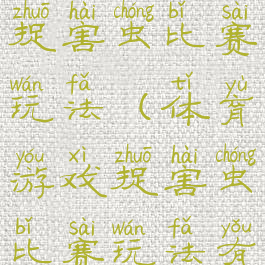 zhuō hài chóng bǐ sài
捉害虫比赛
wán fǎ tǐ yù
玩法（体育
yóu xì zhuō hài chóng
游戏捉害虫
bǐ sài wán fǎ yǒu
比赛玩法有